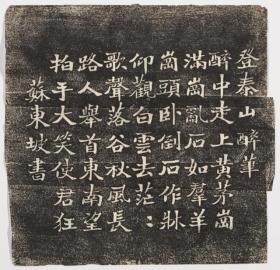 登泰山醉
醉中走上黃茅崗
滿崗亂石如羣羊
崗頭卧倒石作牀
仰觀白雲去茫〻
歌聲落谷秋風長
路人舉首東南望
拍手大笑使君狂
蘇東坡書